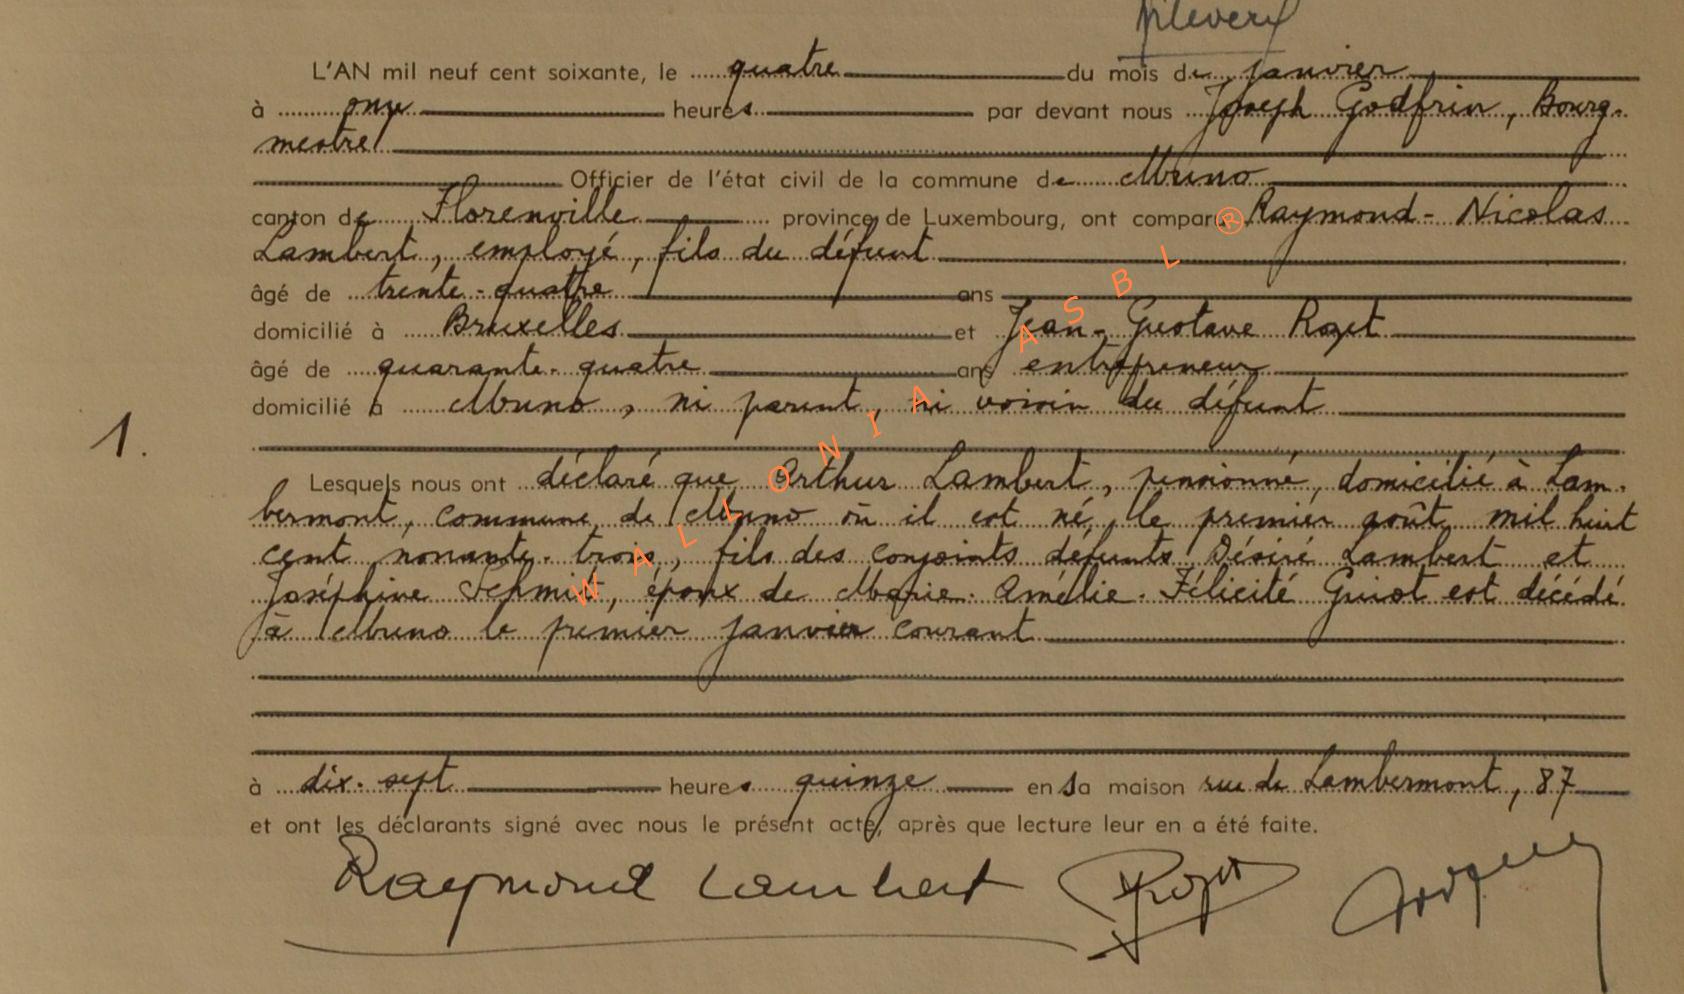 L'AN mil neuf cent soixante, le quatre du mois de janvier
à onze heures par devant nous Joseph Godfrin, Bourg-
mestre
Officier de l'état civil de la commune de Muno
canton de Florenville province de Luxembourg, ont comparu Raymond-Nicolas
Lambert, employé, fils du défunt
âgé de trente-quatre ans
domicilié à Bruxelles et Jean-Gustave Rozet
âgé de quarante-quatre ans entrepreneur
domicilié à Muno, ni parent, ni voisin du défunt
1.
Lesquels nous ont déclaré que Arthur Lambert, pensionné, domicilié à Lam-
bermont, commune de Muno où il est né, le premier août mil huit
cent nonante-trois, fils des conjoints défunts Désiré Lambert et
Joséphine Schmit, époux de Marie-Amélie-Félicité Guiot est décédé
à Muno le premier janvier courant
à dix-sept heures quinze en sa maison rue de Lambermont, 87
et ont les déclarants signé avec nous le présent acte, après que lecture leur en a été faite.
Raymond Lambert Rozet
WALLONIA ASBL ®